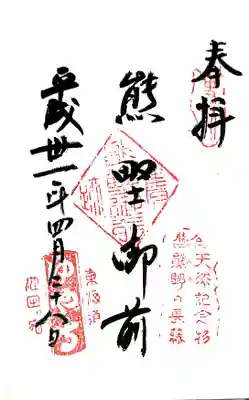 奉拝
天然記念物
熊野の長藤
熊野御前
東海道
池田宿
平成卅一年四月二十八日